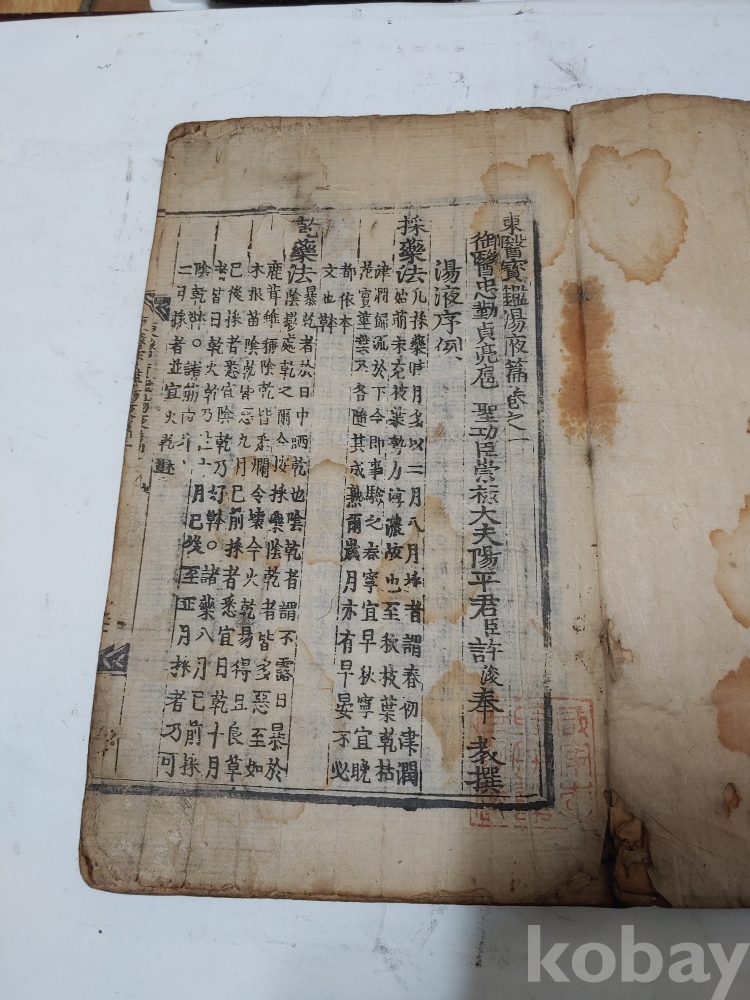 東醫寶鑑湯液篇卷之一
御醫忠勤貞亮扈 聖功臣崇祿大夫陽平君臣許浚奉 教撰
湯液序例
採藥法 凡採藥時月多以二月八月採者謂春初津潤
始萌未充枝葉勢力淳濃故也至秋枝葉乾枯
津潤歸流於下今即事驗之春寧宜早秋寧宜晚
花實莖葉各隨其成熟爾歲月亦有早晏不必
都依本
文也
乾藥法 暴乾者於日中晒乾也陰乾者謂不露日暴於
陰影處乾之爾今按採藥陰乾者皆多惡至如
鹿茸雖稱陰乾皆悉爛令壞今火乾易得且良草
木根苗陰乾皆惡九月已前採者悉宜日乾十月
已後採者悉宜陰乾乃好○諸藥八月已前採
者皆日乾火乾乃十月已後至正月採者乃可
陰乾○諸筋肉
二月採者並宜火乾
kobay